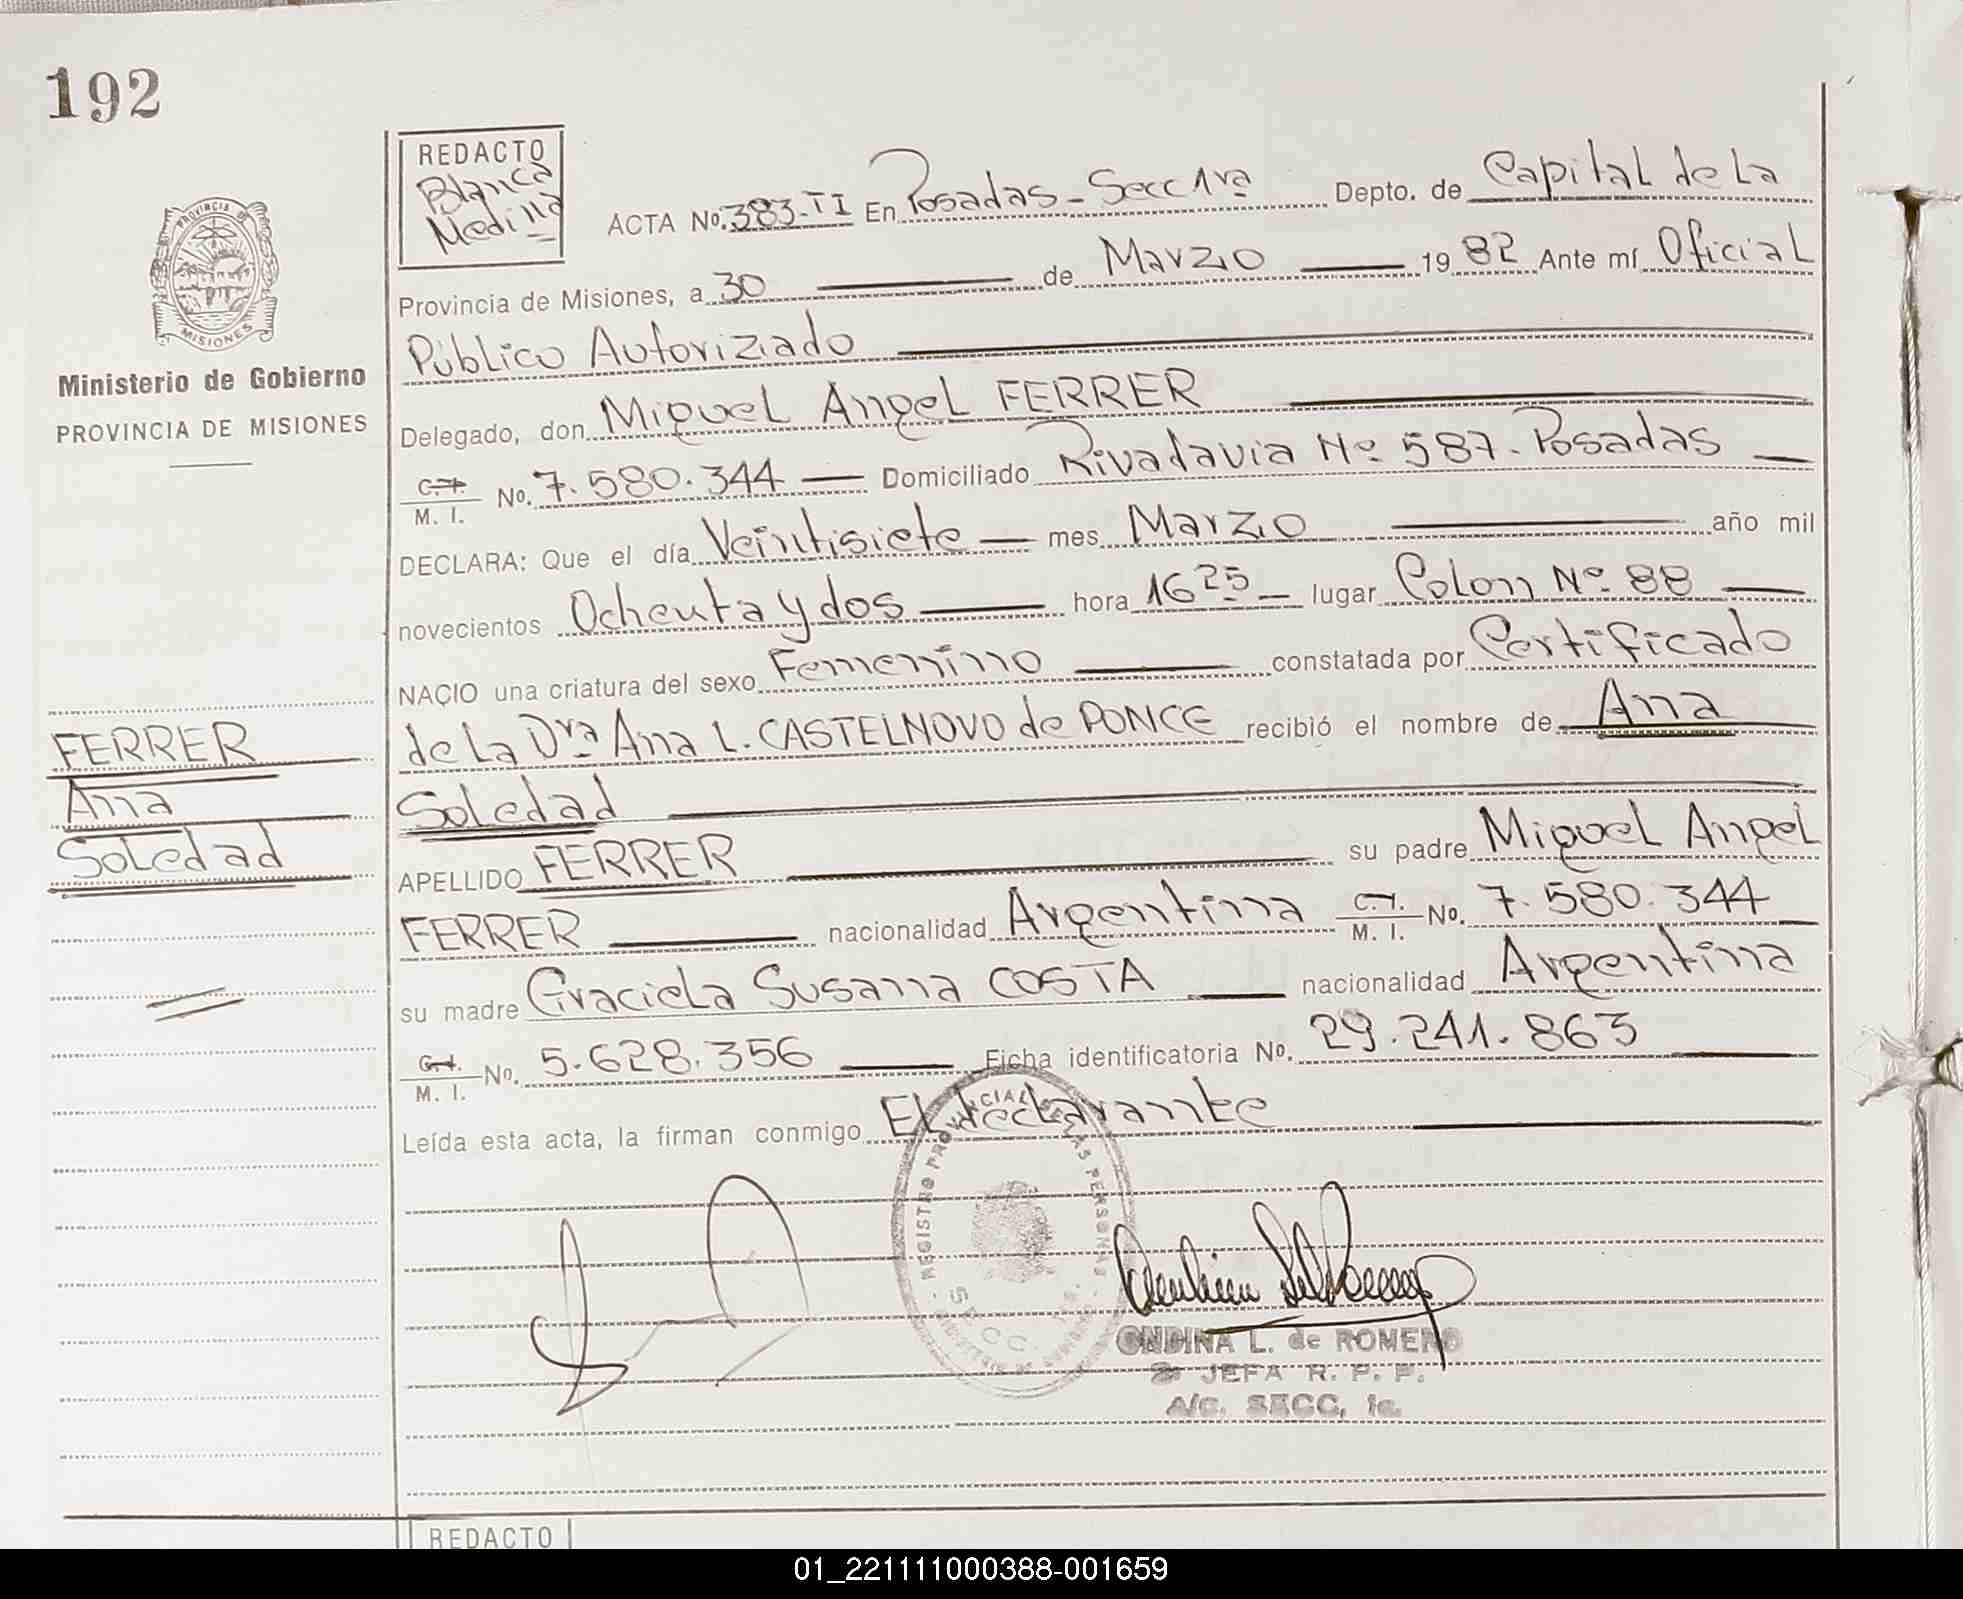 192
PROVINCIA DE
MISIONES
Ministerio de Gobierno
PROVINCIA DE MISIONES
FERRER
Ana
Soledad
REDACTO
Blanca
Medina
ACTA No. 383-II En Posadas - Secc 1ra Depto. de Capital de La
Provincia de Misiones, a 30 de Marzo 1982 Ante mí Oficial
Público Autorizado
Delegado, don Miguel Angel FERRER
C. I. M. I. No. 7.580.344 Domiciliado Rivadavia Nº 587 - Posadas
DECLARA: Que el día Veintisiete mes Marzo año mil
novecientos Ochenta y dos hora 16 25 lugar Colon Nº 88
NACIO una criatura del sexo Femenino constatada por Certificado
de La Dra Ana L. CASTELNOVO de PONCE recibió el nombre de Ana
Soledad
APELLIDO FERRER su padre Miguel Angel
FERRER nacionalidad Argentina C. I. M. I. No. 7.580.344
su madre Graciela Susana COSTA nacionalidad Argentina
C. I. M. I. No. 5.628.356 Ficha identificatoria No. 29.241.863
Leída esta acta, la firman conmigo El declarante
REGISTRO PROVINCIAL DE LAS PERSONAS
SECC.
ONDINA L. de ROMERO
JEFA R. P. P.
A/C. SECC. 1a.
REDACTO
01_221111000388-001659